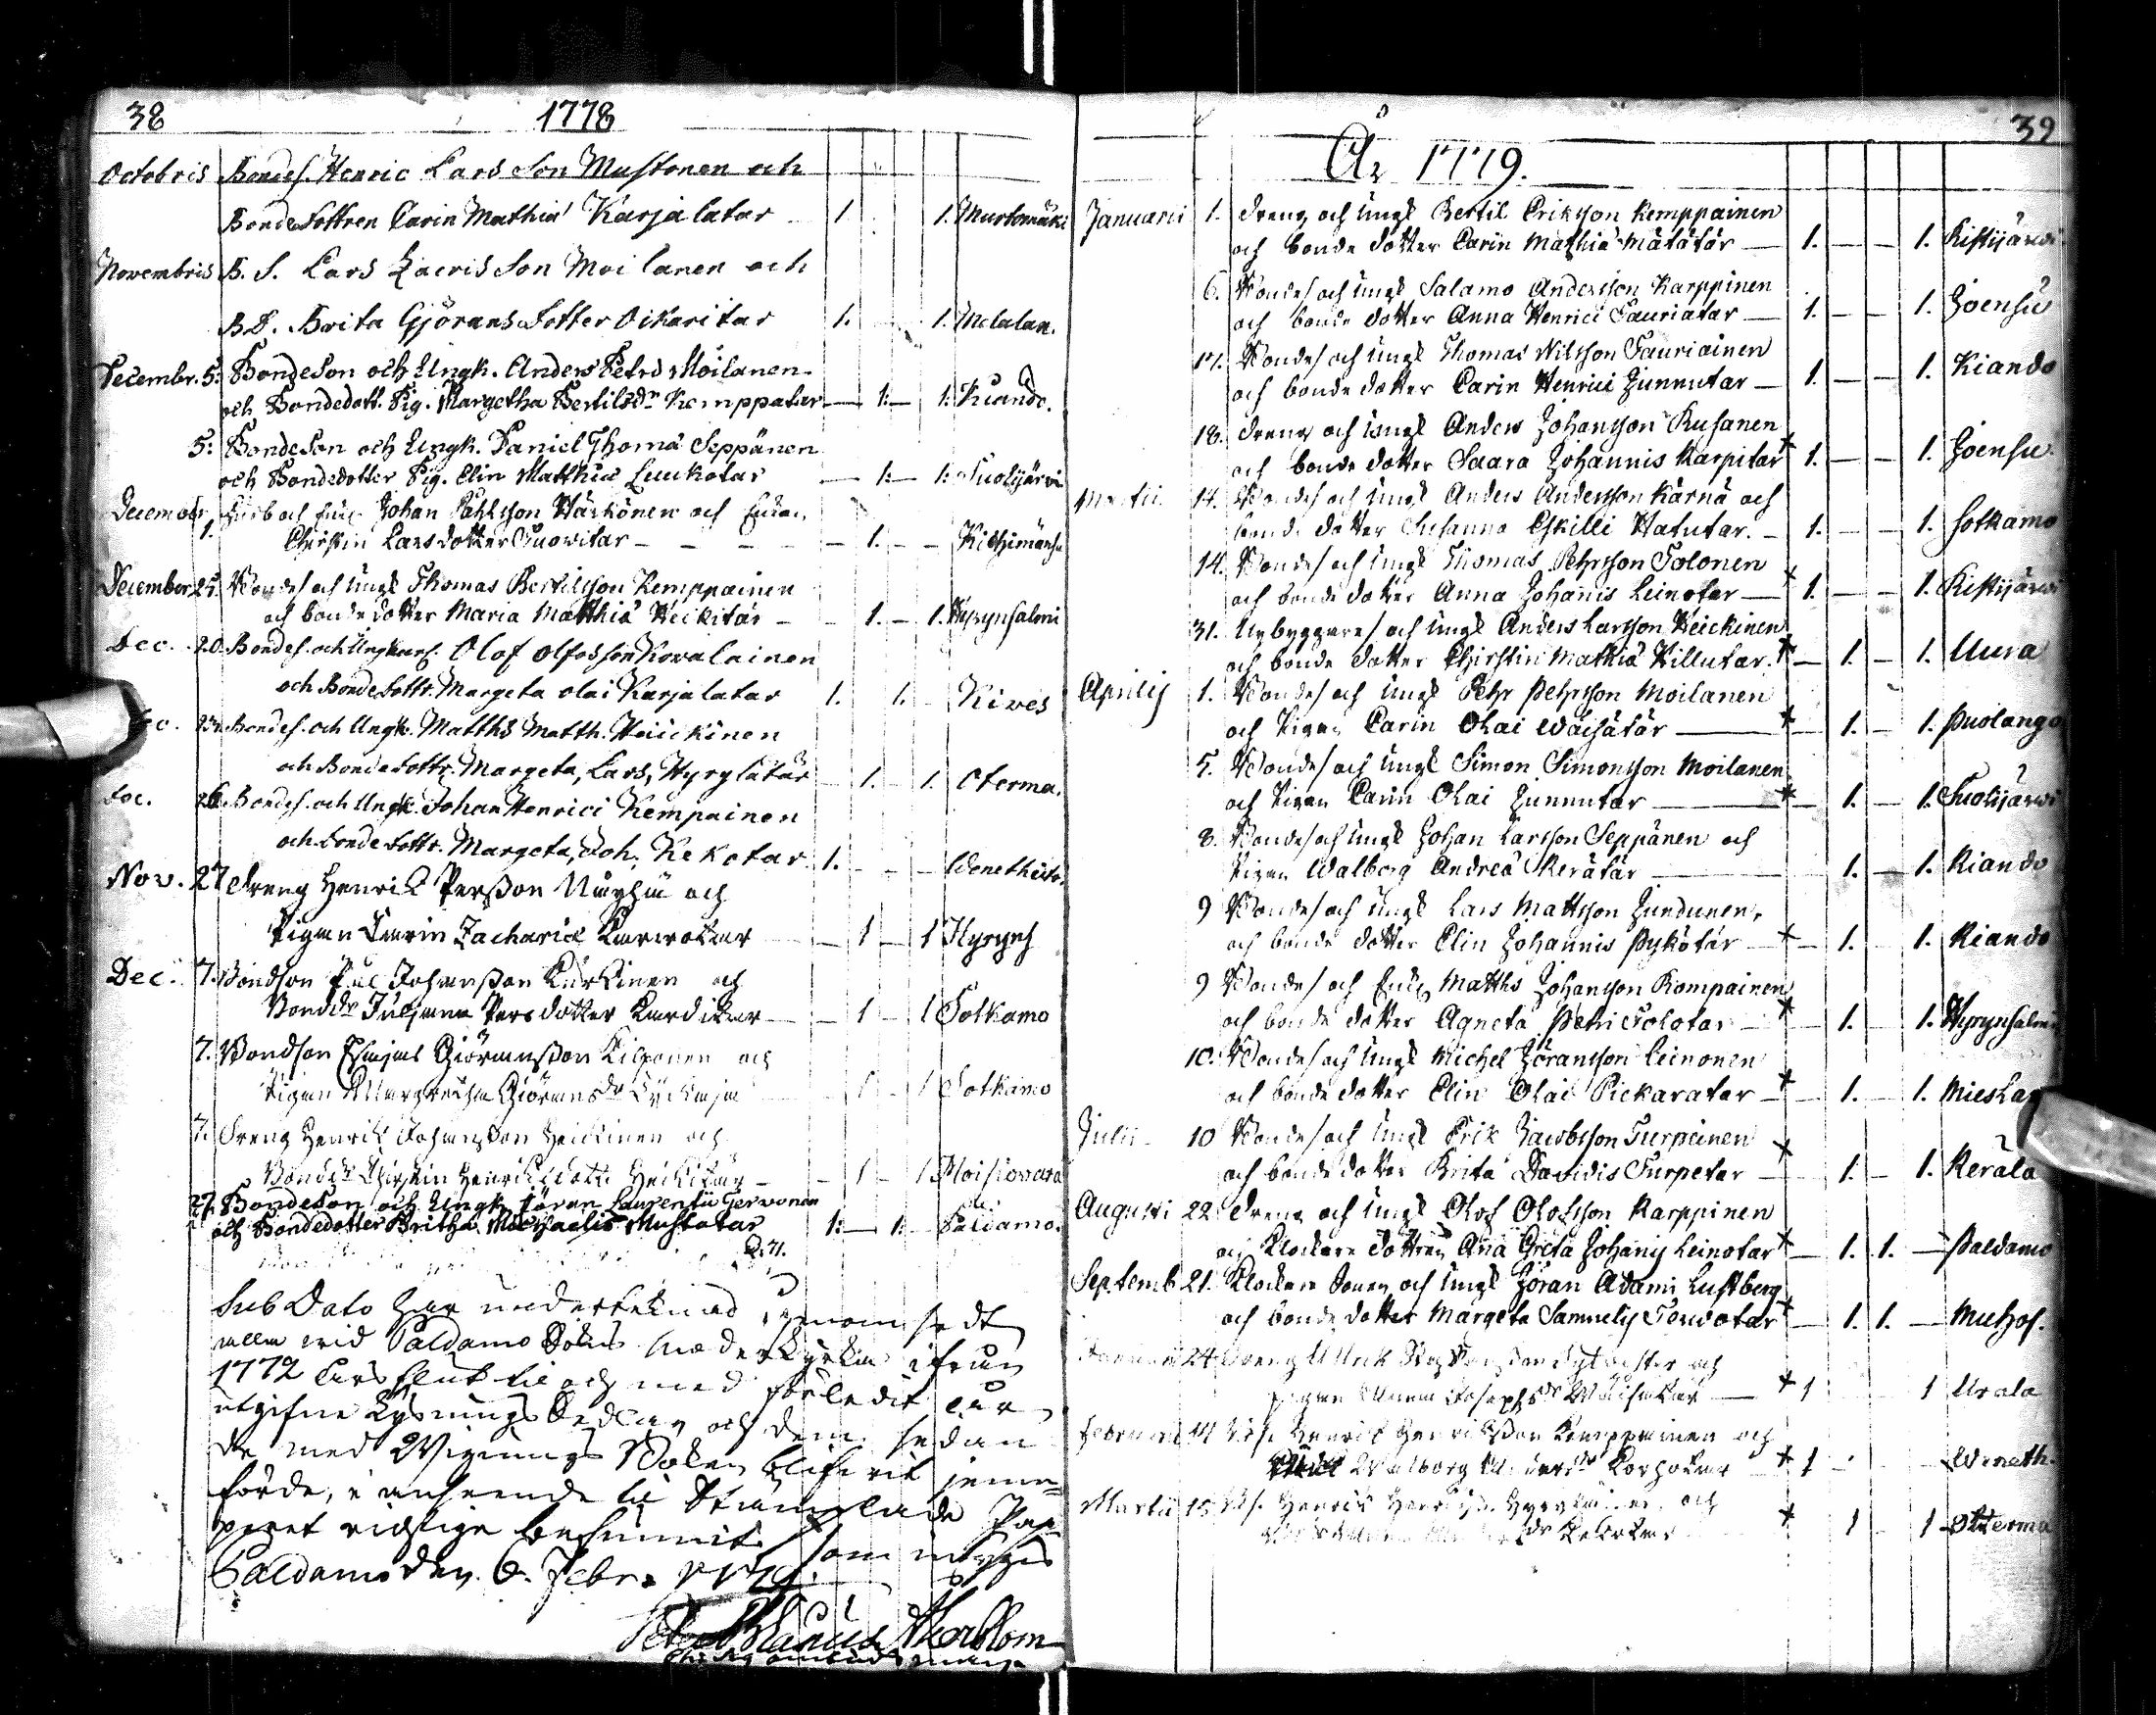 38
1778
Octobris Bondes. Henric Lars Son Mustonen och
Bondedottren Carin Mathiæ Karjalatar 1. 1. Murtomäki
Novembris B. S. Lars Lacris Son Moilanen och
B.D. Brita Gjörans Dotter Oikaritar 1. 1. Melalan.
Decembr. 5: Bondeson och Ungk. Anders Petri Moilanen
och Bondedott. Pig. Margetha Bertilsdr Kemppatar 1: 1: Kiando.
5: Bondeson och Ungk. Daniel Thomæ Seppänen
och Bondedotter Pig. Elin Matthiæ Luukotar 1: 1: Suolijärvi
Decembr
1. Johan Påhlsson Härkönen och Enkan
Christin Larsdotter Tuovitar 1. Kilhimänsu
December 25. Bondes. och Ungk Thomas Bertilsson Kemppainen
och bonde dotter Maria Matthiæ Heikitär 1. 1. Hyrynsalmi
Dec. 20. Bondes. och Ungkars. Olof Olofsson Kovalainen
och Bondedottr. Margeta Olai Karjalatar 1. 1. Kives
Bondes. och Ungk. Matths Matth. Heickinen
och Bondedottr. Margeta, Lars, Hyrylätär 1. 1. Oterma.
26. Bondes. och Ungk. Johan Henrici Kempainen
och Bondedottr. Margeta, Joh. Kekotar 1. Wenetheito
Nov. 27 Dreng Henrik Persson och
Pigan Carin Zachariæ 1 1 Hyryns
Dec. 7. Bondson Pål Johansson Kurkinen och
Bonddr Persdotter 1 1 Sotkamo
7. Bondson Giöransson Kilponen och
Pigan Margretha Giöransdr 1 1 Sotkamo
7. Dreng Henrik Johansson Heickinen och
Bonddr Christin Henriksdotter Heikitär 1 1 Moisiovara
27. Bondeson och Ungk. Jöran Laurentii Gervonen
och Bondedotter Britha Michaelis Mustotar 1: 1: Paldamo.
Sub Dato har undertecknad genomsedt
alla wid Paldamo Sokns Moderkyrka ifrån
1772 åhrs slut til och med förledit åhr
utgifne Lysnings Sedlar och dem sedan
de med Wignings Boken blifwit jemn=
förde, i anseende til Stämplade Pap=
peret richtige befunnit, som intygas
Paldamo den 6. Febr. 1779.
39
År 1779.
Januarii 1. dreng och Ungk Bertil Eriksson Kemppainen
och bonde dotter Carin Mathiæ Mätätär 1. 1. Ristijärwi
6. Bondes och Ungk Salamo Andersson Karppinen
och bonde dotter Anna Henrici Tauriatar 1. 1. Joensu
17. Bondes och Ungk Thomas Nilsson Tauriainen
och bonde dotter Carin Henrici Junnutar 1. 1. Kiando
18. dreng och Ungk Anders Johansson Rusanen
och bonde dotter Saara Johannis Karpitar * 1. 1. Joensu
Martii. 14. Bondes och Ungk Anders Andersson Kärnä och
bonde dotter Susanna Eskilli Hatutar. 1. 1. Sotkamo
14. Bondes och Ungk Thomas Pehrsson Tolonen
och bonde dotter Anna Johannis Leinotar * 1. 1. Ristijärwi
31. Nybyggare och Ungk Anders Larsson Heickinen
och bonde dotter Christin Mathiæ Killutar. * 1. 1. Uura
Aprilis 1. Bondes och Ungk Pehr Pehrsson Moilanen
och Pigan Carin Olai Wäisätär * 1. 1. Puolango
5. Bondes och Ungk Simon Simonsson Moilanen
och Pigan Carin Olai Junnutar * 1. 1. Suolijärwi
8. Bondes och Ungk Johan Larsson Seppänen och
Pigan Walborg Andreæ Kerätär 1. 1. Kiando
9 Bondes och Ungk Lars Mattsson Jundunen,
och bonde dotter Elin Johannis Pykötär * 1. 1. Kiando
9 Bondes och Enkl Matths Johansson Kompainen
och bonde dotter Agneta Petri Tolotar * 1. 1. Hyrynsalmi
10. Bondes och Ungk Michel Jöransson Leinonen
och bonde dotter Elin Olai Pickaratar * 1. 1. Mieslax
Julii 10 Bondes och Ungk Erik Jacobsson Turpeinen
och bonde dotter Brita Davidis Turpetar * 1. 1. Kerälä
Augusti 22. dreng och Ungk Olof Olofsson Karppinen
och Klockare dottren Ana Greta Johanis Leinotar * 1. 1. Paldamo
Septemb 21. Klockare Sonen och Ungk Jöran Adami Lustberg
och bonde dotter Margeta Samuelis Tervotar * 1. 1. Muhos.
Januarii 24. Dreng Ulrik och
Pigan Anna Josephsdr * 1 1 Urala
Februarii 14 Henrik Henriksson Kemppainen och
Walborg Korhotar * 1 Weneth.
Martii 15 Bs. Henrik och
* 1 1 Otterma